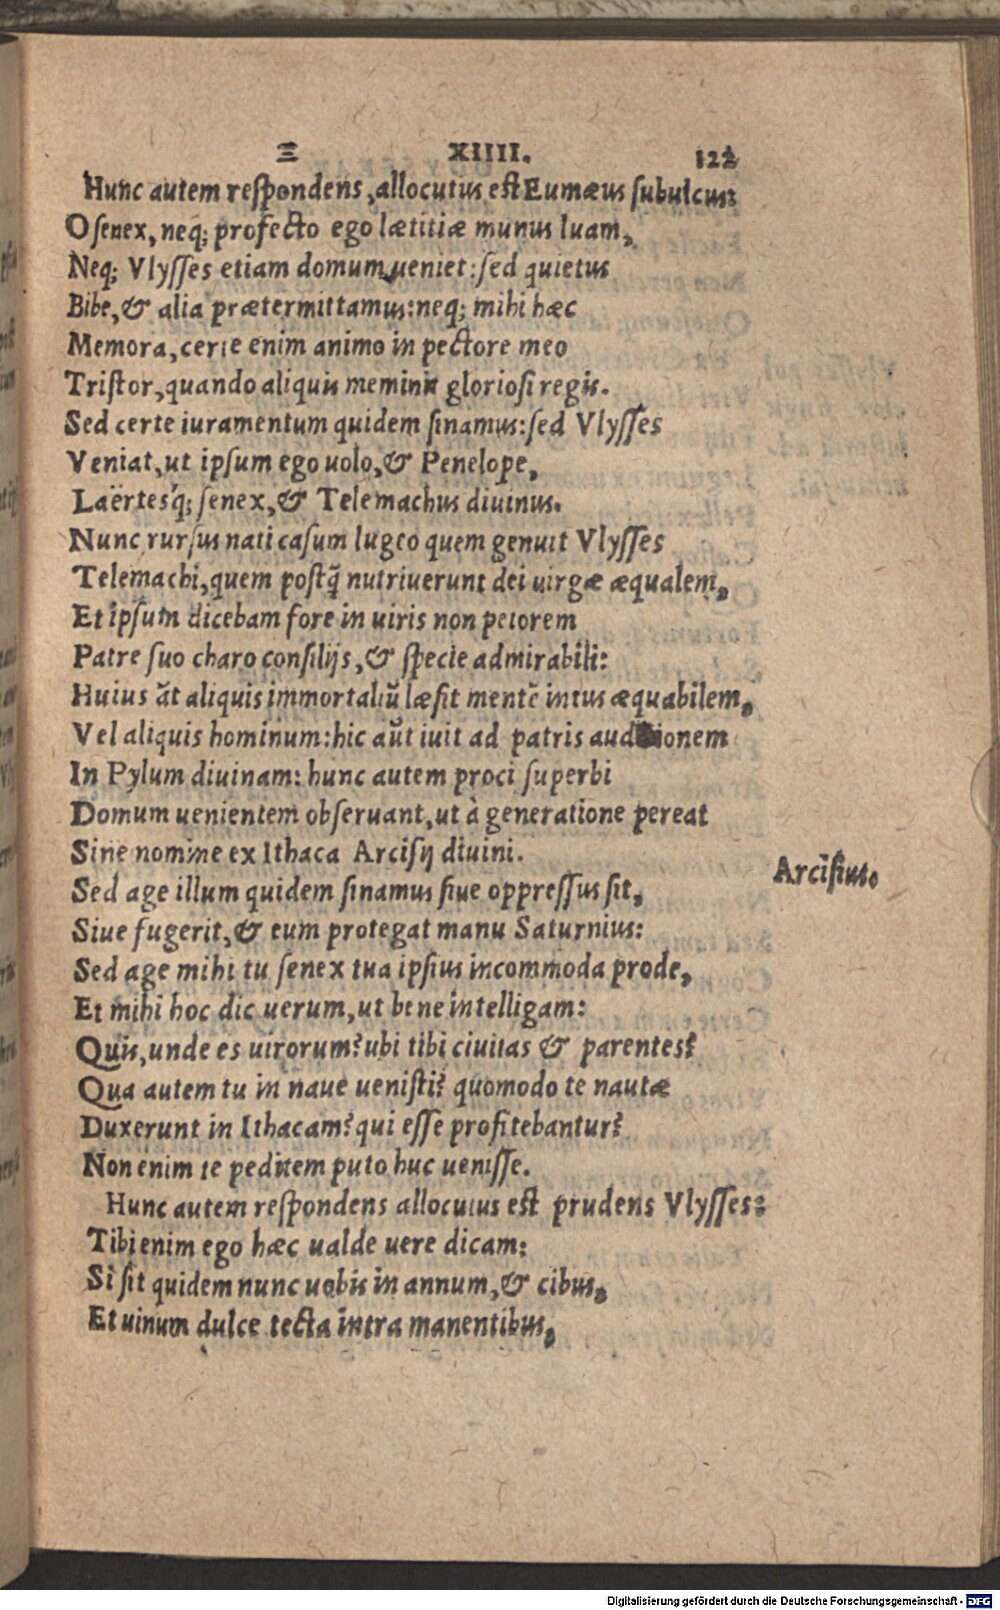 Ξ XIIII. 122
Hunc autem reſpondens, allocutus eſt Eumæus ſubulcus:
O ſenex, neq; profecto ego lætitiæ munus luam,
Neq; Vlyſſes etiam domum ueniet: ſed quietus
Bibe, & alia prætermittamus: neq; mihi hæc
Memora, certe enim animo in pectore meo
Triſtor, quando aliquis meminit glorioſi regis.
Sed certe iuramentum quidem ſinamus: ſed Vlyſſes
Veniat, ut ipſum ego uolo, & Penelope,
Laërtesq́; ſenex, & Telemachus diuinus.
Nunc rurſus nati caſum lugeo quem genuit Vlyſſes
Telemachi, quem poſtq̃ nutriuerunt dei uirgæ æqualem,
Et ipſum dicebam fore in uiris non peiorem
Patre ſuo charo conſilijs, & ſpecie admirabili:
Huius āt aliquis immortaliũ læſit mentē intus æquabilem,
Vel aliquis hominum: hic aũt iuit ad patris auditionem
In Pylum diuinam: hunc autem proci ſuperbi
Domum uenientem obſeruant, ut à generatione pereat
Sine nomine ex Ithaca Arciſij diuini.
Arciſius.
Sed age illum quidem ſinamus ſiue oppreſſus ſit,
Siue fugerit, & eum protegat manu Saturnius:
Sed age mihi tu ſenex tua ipſius incommoda prode,
Et mihi hoc dic uerum, ut bene intelligam:
Quis, unde es uirorum? ubi tibi ciuitas & parentes?
Qua autem tu in naue ueniſti? quomodo te nautæ
Duxerunt in Ithacam? qui eſſe profitebantur?
Non enim te peditem puto huc ueniſſe.
Hunc autem reſpondens allocutus eſt prudens Vlyſſes:
Tibi enim ego hæc ualde uere dicam:
Si ſit quidem nunc uobis in annum, & cibus,
Et uinum dulce tecta intra manentibus,
Digitalisierung gefördert durch die Deutsche Forschungsgemeinschaft - DFG